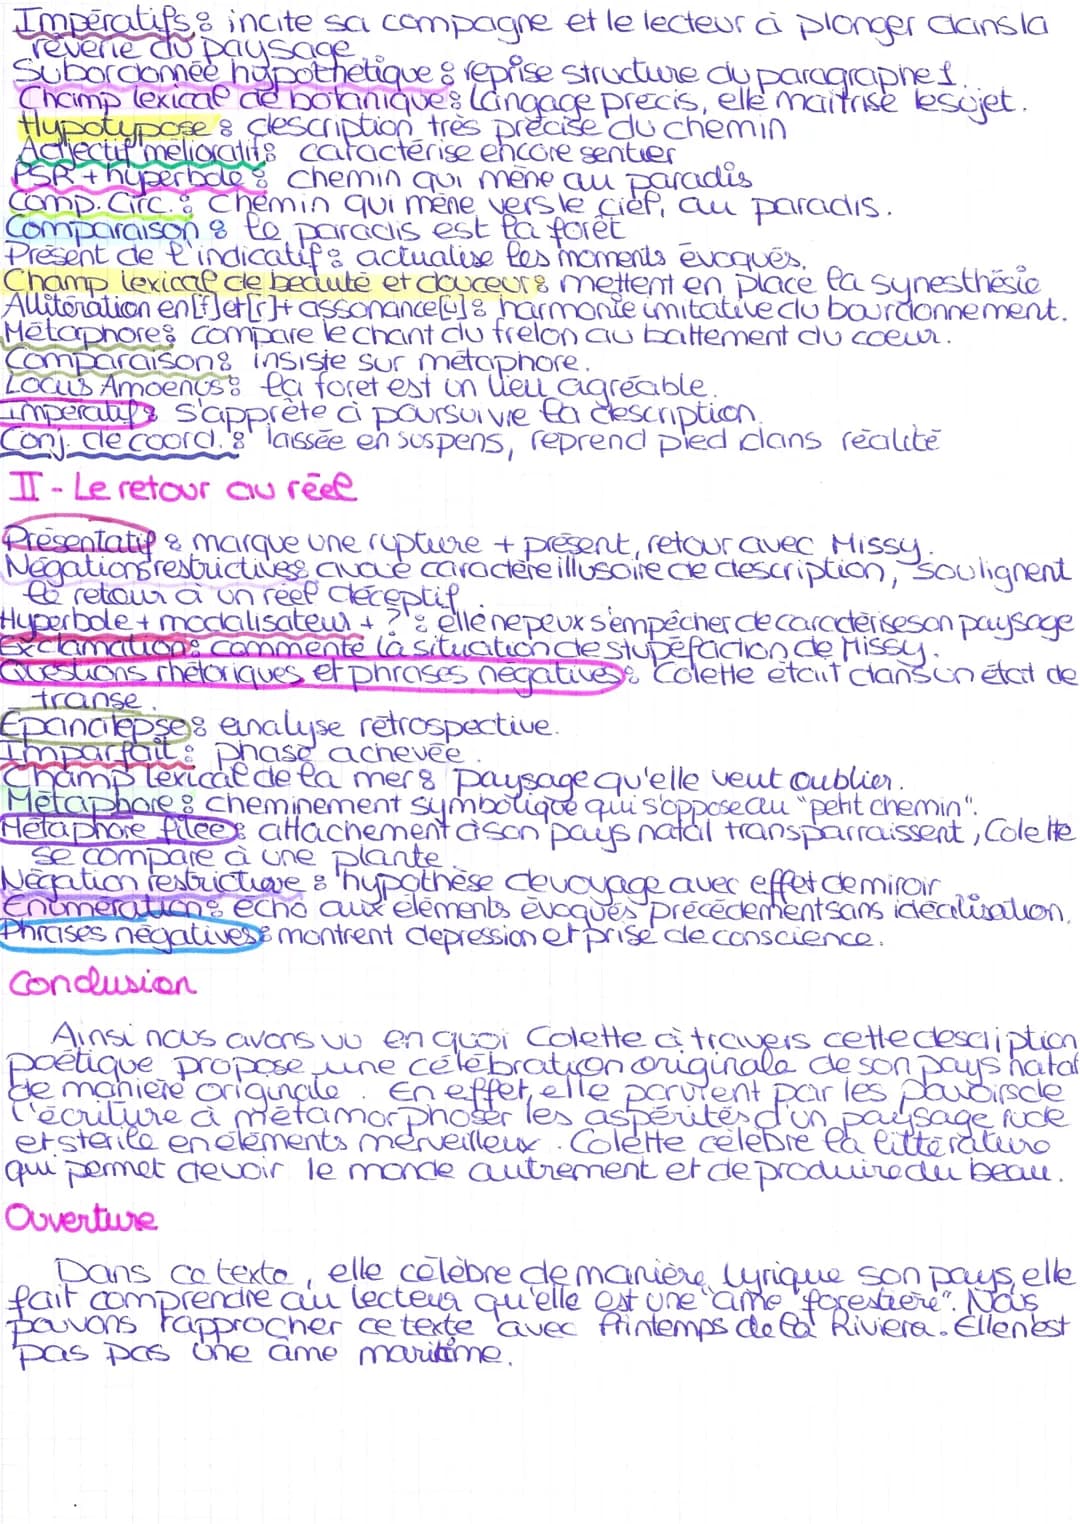 Impératifs : incite sa compagne et le lecteur à plonger dans la
rêverie du paysage
Subordonnée hypothétique : reprise structure du paragraphe 1.
Champ lexical de botanique : langage précis, elle maitrise le sujet.
Hypotypose : description très précise du chemin
Adjectif mélioratif : caractérise encore sentier
PSR + hyperbole : chemin qui mène au paradis
Comp. Circ. : chemin qui mène vers le ciel, au paradis.
Comparaison : le paradis est la forêt
Présent de l'indicatif : actualise les moments évoqués.
Champ lexical de beauté et douceur : mettent en place la synesthésie
Allitération en [f] et [r] + assonance [u] : harmonie imitative du bourdonnement.
Métaphore : compare le chant du frelon au battement du coeur.
Comparaison : insiste sur métaphore.
Locus Amoenus : la foret est un lieu agréable.
Impératif : s'apprête à poursuivre la description.
Conj. de coord. : laissée en suspens, reprend pied dans réalité
II - Le retour au réel
Présentatif : marque une rupture + présent, retour avec Missy.
Négations restrictives : avoue caractère illusoire de description, soulignent
le retour à un réel déceptif.
Hyperbole + modalisateur + ? : elle ne peux s'empêcher de caractériser son paysage
Exclamation : commente la situation de stupéfaction de Missy.
Questions rhétoriques et phrases négatives : Colette était dans un état de
transe.
Epanalepse : analyse rétrospective.
Imparfait : phase achevée.
Champ lexical de la mer : paysage qu'elle veut oublier.
Métaphore : cheminement symbolique qui s'oppose au "petit chemin".
Métaphore filée : attachement à son pays natal transparraissent, Colette
se compare à une plante.
Négation restrictive : hypothèse de voyage avec effet de miroir
Enumération : écho aux éléments évoqués précédement sans idéalisation.
Phrases négatives : montrent depression et prise de conscience.
Conclusion
Ainsi nous avons vu en quoi Colette à travers cette description
poétique propose une célébration originale de son pays natal
de manière originale. En effet, elle parvient par les pouvoirs de
l'écriture à métamorphoser les aspérités d'un paysage rude
et stérile en éléments merveilleux. Colette célèbre la littérature
qui permet de voir le monde autrement et de produire du beau.
Ouverture
Dans ce texte, elle célèbre de manière lyrique son pays, elle
fait comprendre au lecteur qu'elle est une "âme forestière". Nous
pouvons rapprocher ce texte avec Printemps de la Riviera. Elle n'est
pas pas une âme maritime.